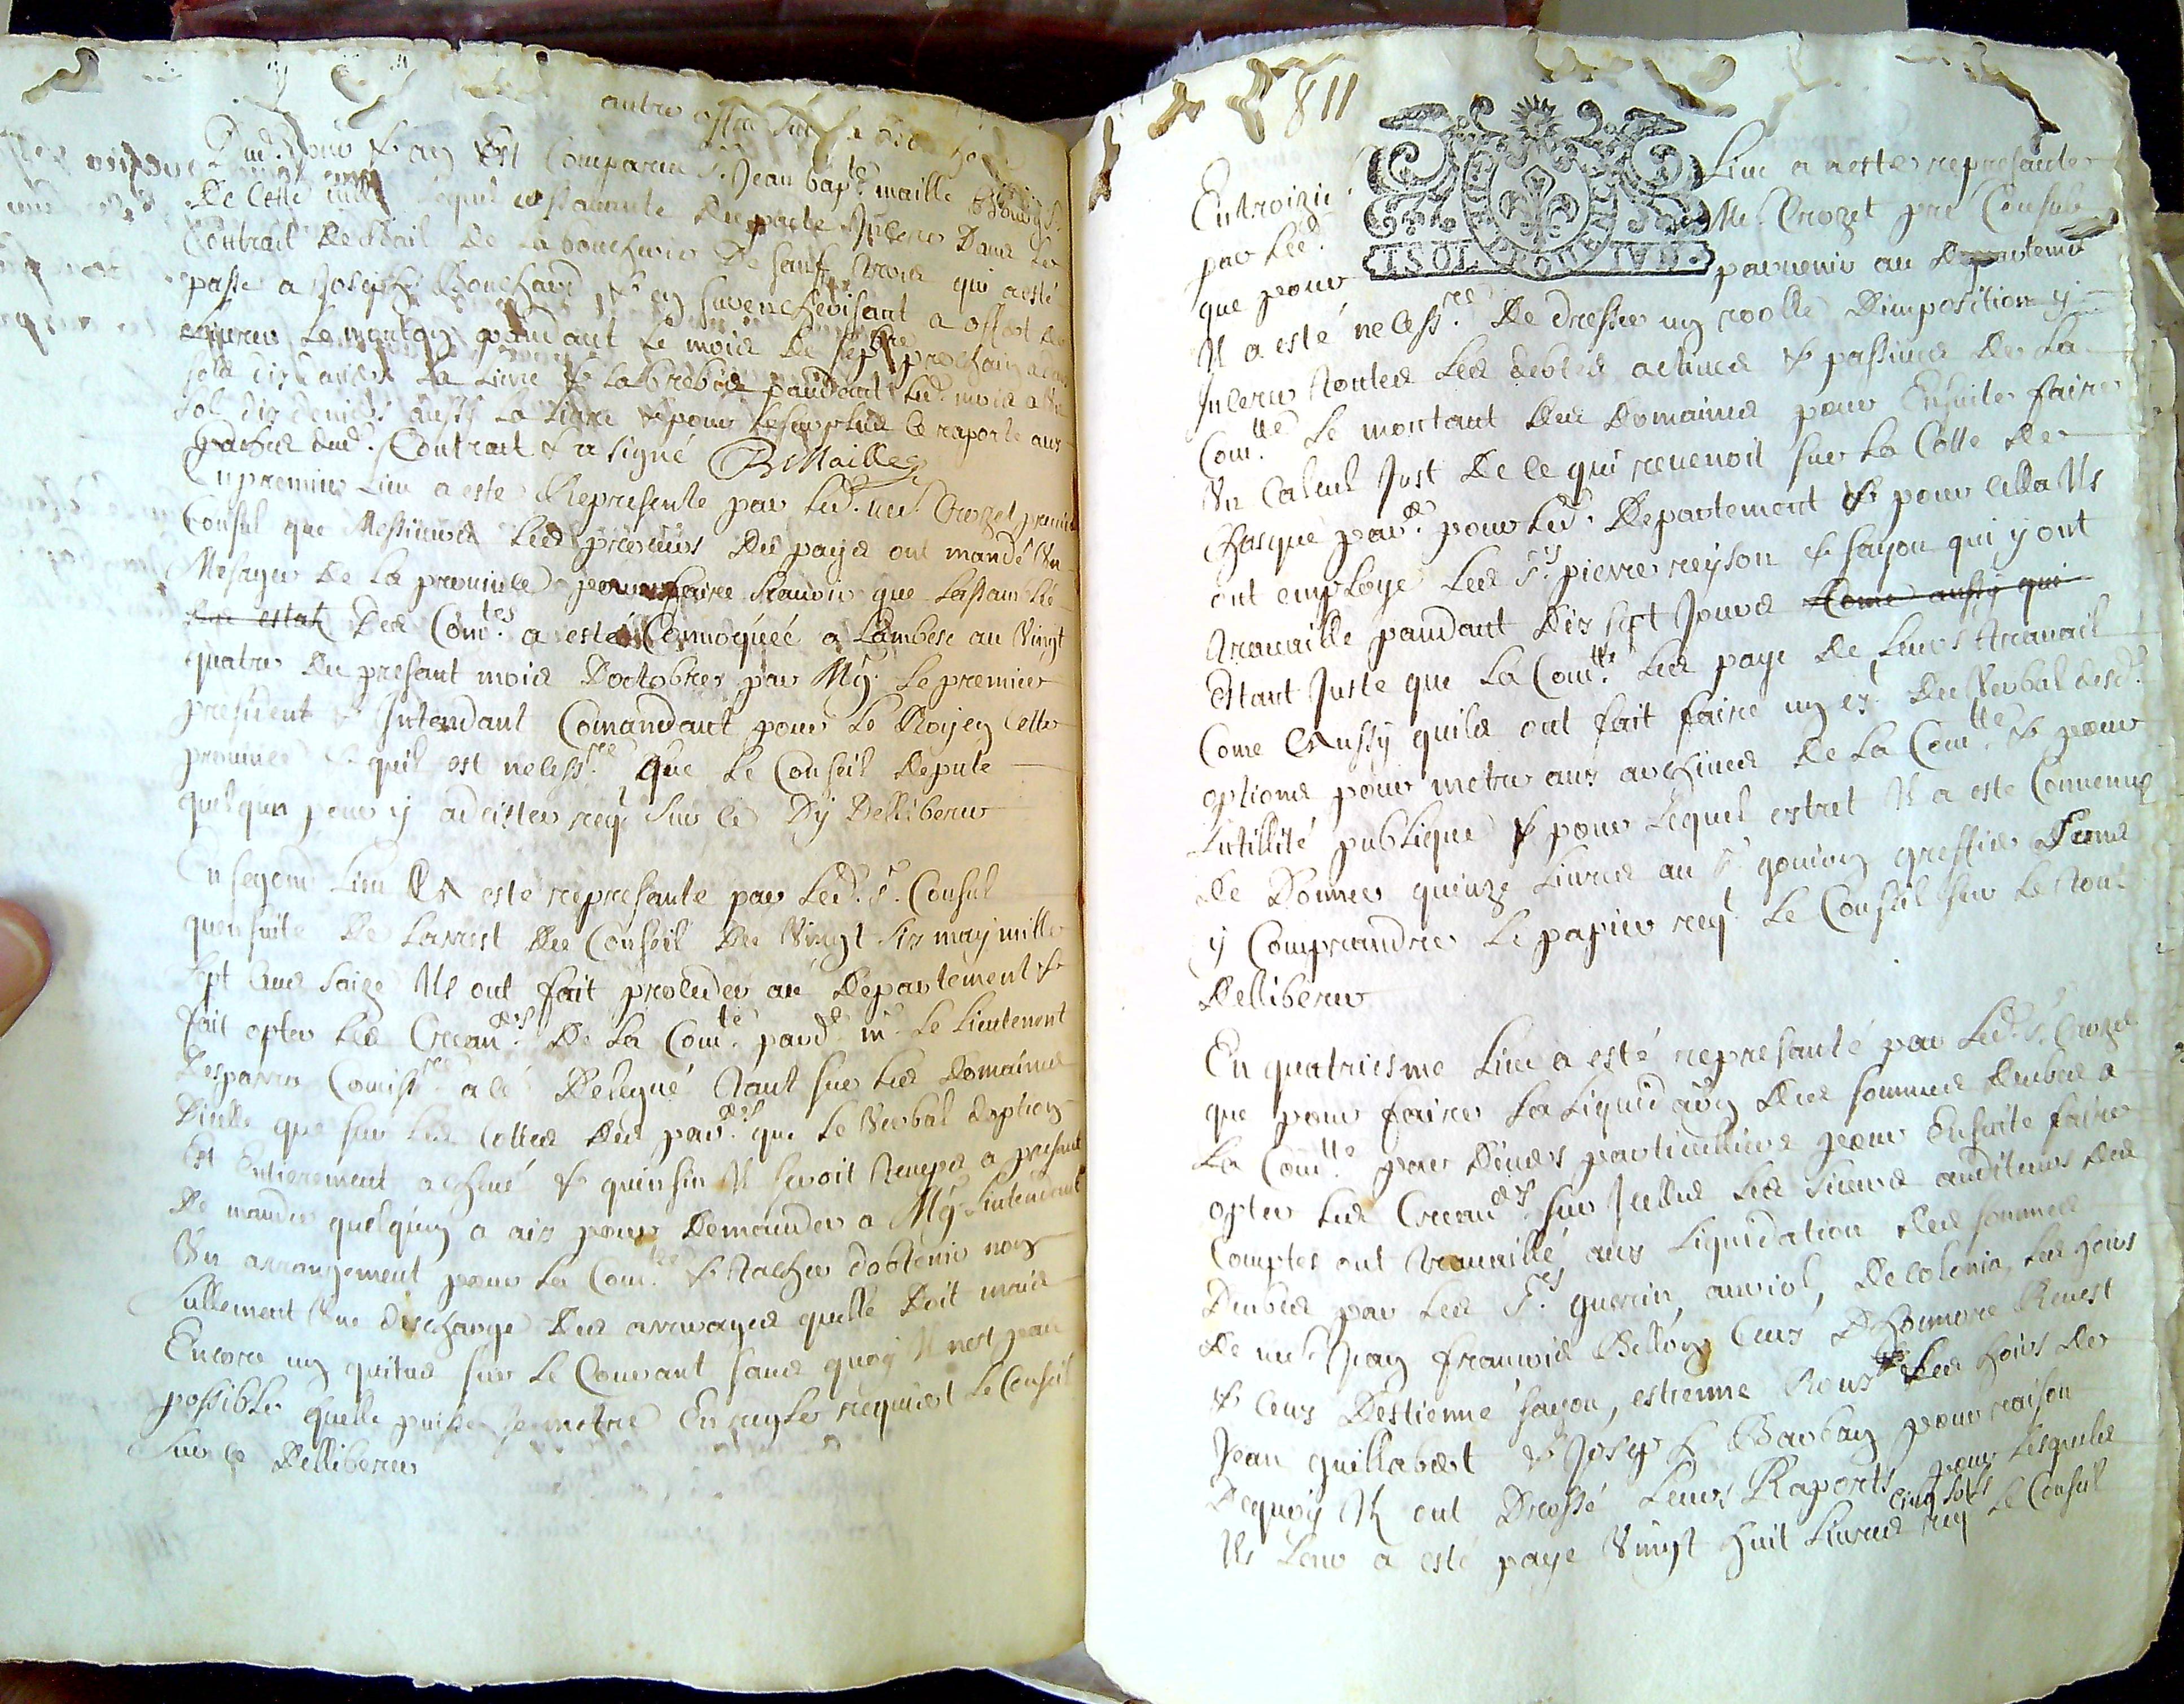 autre offre sur
Dud. jour & an Est Comparu Sr. Jean bapte. maille Bourgs.
De Cette ville lequel ensuitte Du pacte Inseré Dans le
Contrait De Bail De la boucherie De sauf Trois qui a esté
passé a Joseph Bouchard & en surencherisant a offert de
Livrer le mouton pandant le mois De sepbre prochain a
sols dix deniers la Livre & la brebis pandant led. mois a
sol dix deniers aussy la Livre & pour le surplus Ce raporte aux
pactes dud. Contrait & a signé B Maille
En premier Lieu a este Represente par led. me. Crozet premier
Consul que Messieurs les procurs. Du pays ont mandé Un
Mesager De la province pour faire scavoir que lassamblée
des estats Des Comtes. a esté Convoquéé a Lambesc au Vingt
quatre Du presant mois D'octobre par Mg. le premier
president & Intandant Comandant pour le Roy en Cette
province & quil est necessre. Que le Conseil depute
quelqun pour y adcister reqt. sur ce Dy Delliberer
En segond Lieu A este represante par led. Sr. Consul
quensuite De larrest Du Conseil Du Vingt six may mille
sept Cens saize Ils ont fait proceder au Departement &
fait opter les Creanders. De la Comte. pard. mr. le Lieutenent
Desparra Comissre. a ce Delegué Tant sur les Domaines
Dicelle que sur les Cottes Des parders. que le Verbal doption
Est Entierement achevé & quensin Il seroit Temps a presant
De mander quelqun a aix pour Demander a Mg. Lintendant
Un arrangement pour la Comte. & Tacher dobtenir non
sullement Une descharge Des arreyages quelle Doit mais
Encore un quitus sur le Courant sans quoy Il nest pas
possible quelle puisse se metre En regle requiert le Conseil
sur ce Delliberer
811
Entroizie. Lieu a esté represanter
par led. Me. Crozet pre Consul
que pour parvenir au Departement
Il a esté necessre. De dresser un roolle Dimposition y
Inserer Toutes les debtes actives & passives De la
Comte. le montant Des Domaines pour Ensuite faire
Un Calcul Just De ce qui revenoit sur la Cotte de
Chasque pard. pour led. Departement & pour cella Ils
ont employé les Srs. pierre reyson & sayon qui y ont
travaillé pandant Dix sept Jours Come aussy qui
Estant Juste que la Comte. les paye De Leurs travail
Come Aussy quils ont fait faire un ex. Du Verbal desd.
options pour metre aux archives De la Comte. & pour
Lutillité publique & pour lequel extret Il a esté Convenu
De Donner quinze Livres au Sr. gouion greffier sans
y Comprandre le papier reqt. le Conseil sur le tout
Delliberer
En quatriesme Lieu a esté represanté par led. Sr. Crozet
que pour faire la Liquidaon Des sommes Deubes a
la Comte. par Divers particulliers pour Ensuite faire
opter les Creanders. sur Icelles les sieurs auditeurs des
Comptes ont travaillé aux Liquidation des sommes
Deubes par les Srs. guerin, auriol, De colonia, les hoirs
De me. Jean francois Bellon Ceux D'Honnore Revest
& Ceux Destienne sayon, estienne Roux les hoirs De
Jean guillabert & Joseph Barban pour raison
Dequoy Ils ont Dressé Leurs Raports pour lesquels
cinq sols
Ils Leur a esté payé Vingt huit Livres reqt. le Conseil